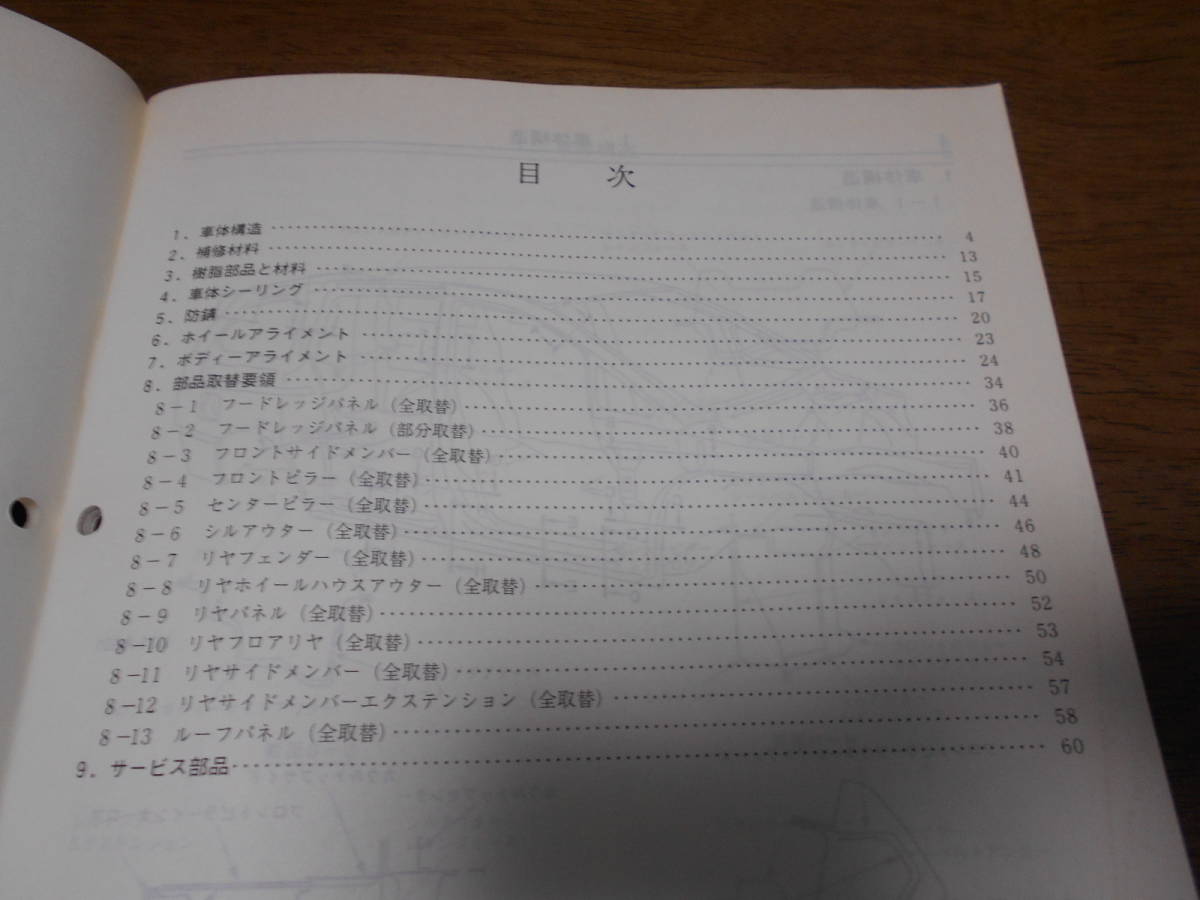 目 次
1．車体構造 4
2．補修材料 13
3．樹脂部品と材料 15
4．車体シーリング 17
5．防錆 20
6．ホイールアライメント 23
7．ボディーアライメント 24
8．部品取替要領 34
8－1 フードレッジパネル (全取替) 36
8－2 フードレッジパネル (部分取替) 38
8－3 フロントサイドメンバー (全取替) 40
8－4 フロントピラー (全取替) 41
8－5 センターピラー (全取替) 44
8－6 シルアウター (全取替) 46
8－7 リヤフェンダー (全取替) 48
8－8 リヤホイールハウスアウター (全取替) 50
8－9 リヤパネル (全取替) 52
8－10 リヤフロアリヤ (全取替) 53
8－11 リヤサイドメンバー (全取替) 54
8－12 リヤサイドメンバーエクステンション (全取替) 57
8－13 ルーフパネル (全取替) 58
9．サービス部品 60